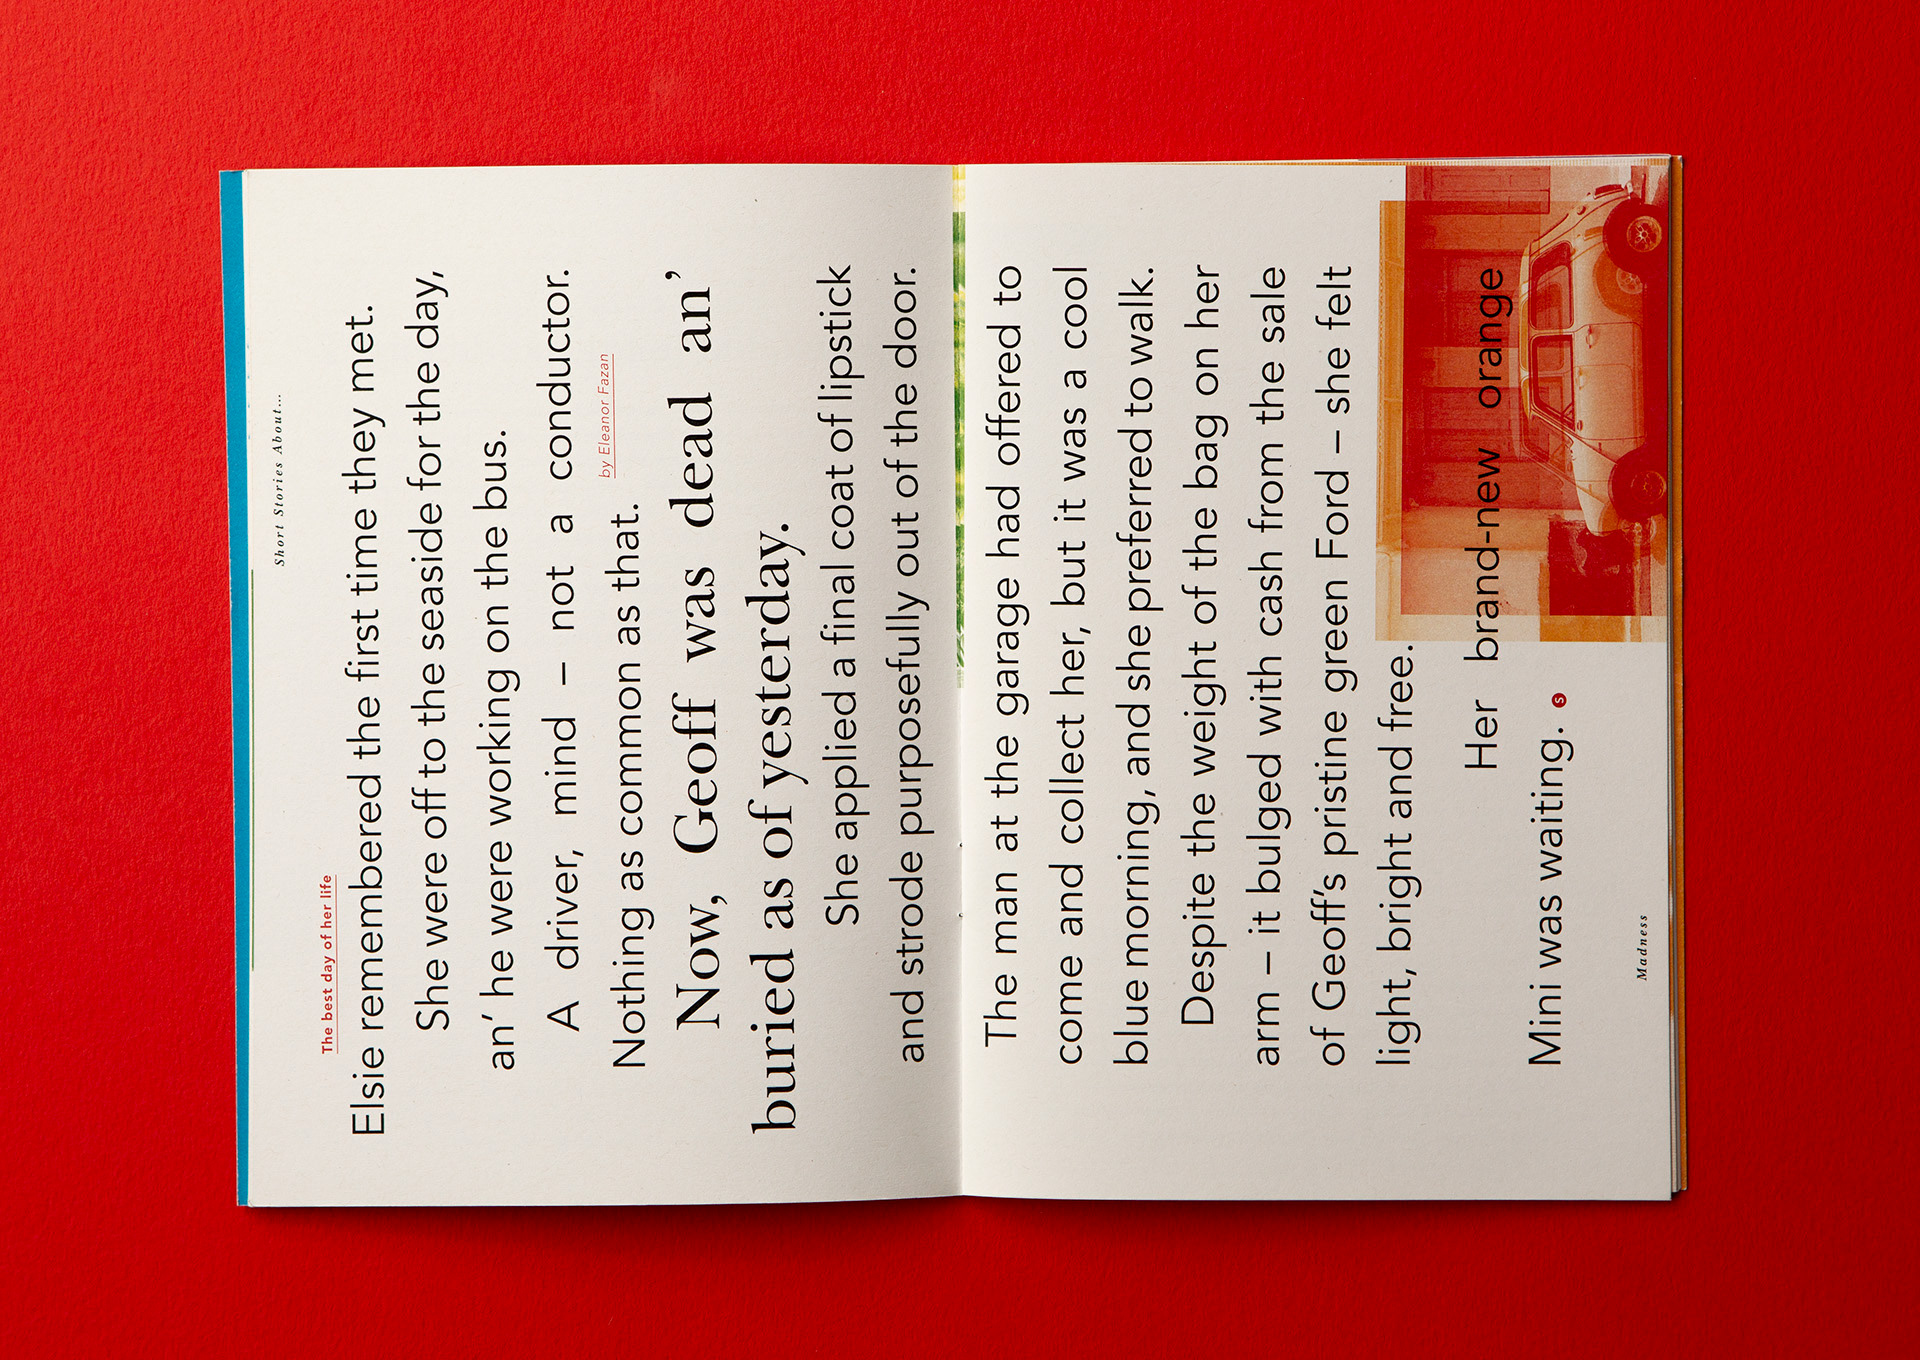 Short Stories About...
The best day of her life
Elsie remembered the first time they met.
She were off to the seaside for the day,
an’ he were working on the bus.
A driver, mind – not a conductor.
by Eleanor Fazan
Nothing as common as that.
Now, Geoff was dead an’
buried as of yesterday.
She applied a final coat of lipstick
and strode purposefully out of the door.
The man at the garage had offered to
come and collect her, but it was a cool
blue morning, and she preferred to walk.
Despite the weight of the bag on her
arm – it bulged with cash from the sale
of Geoff’s pristine green Ford – she felt
light, bright and free.
Her brand-new orange
Mini was waiting. S
Madness